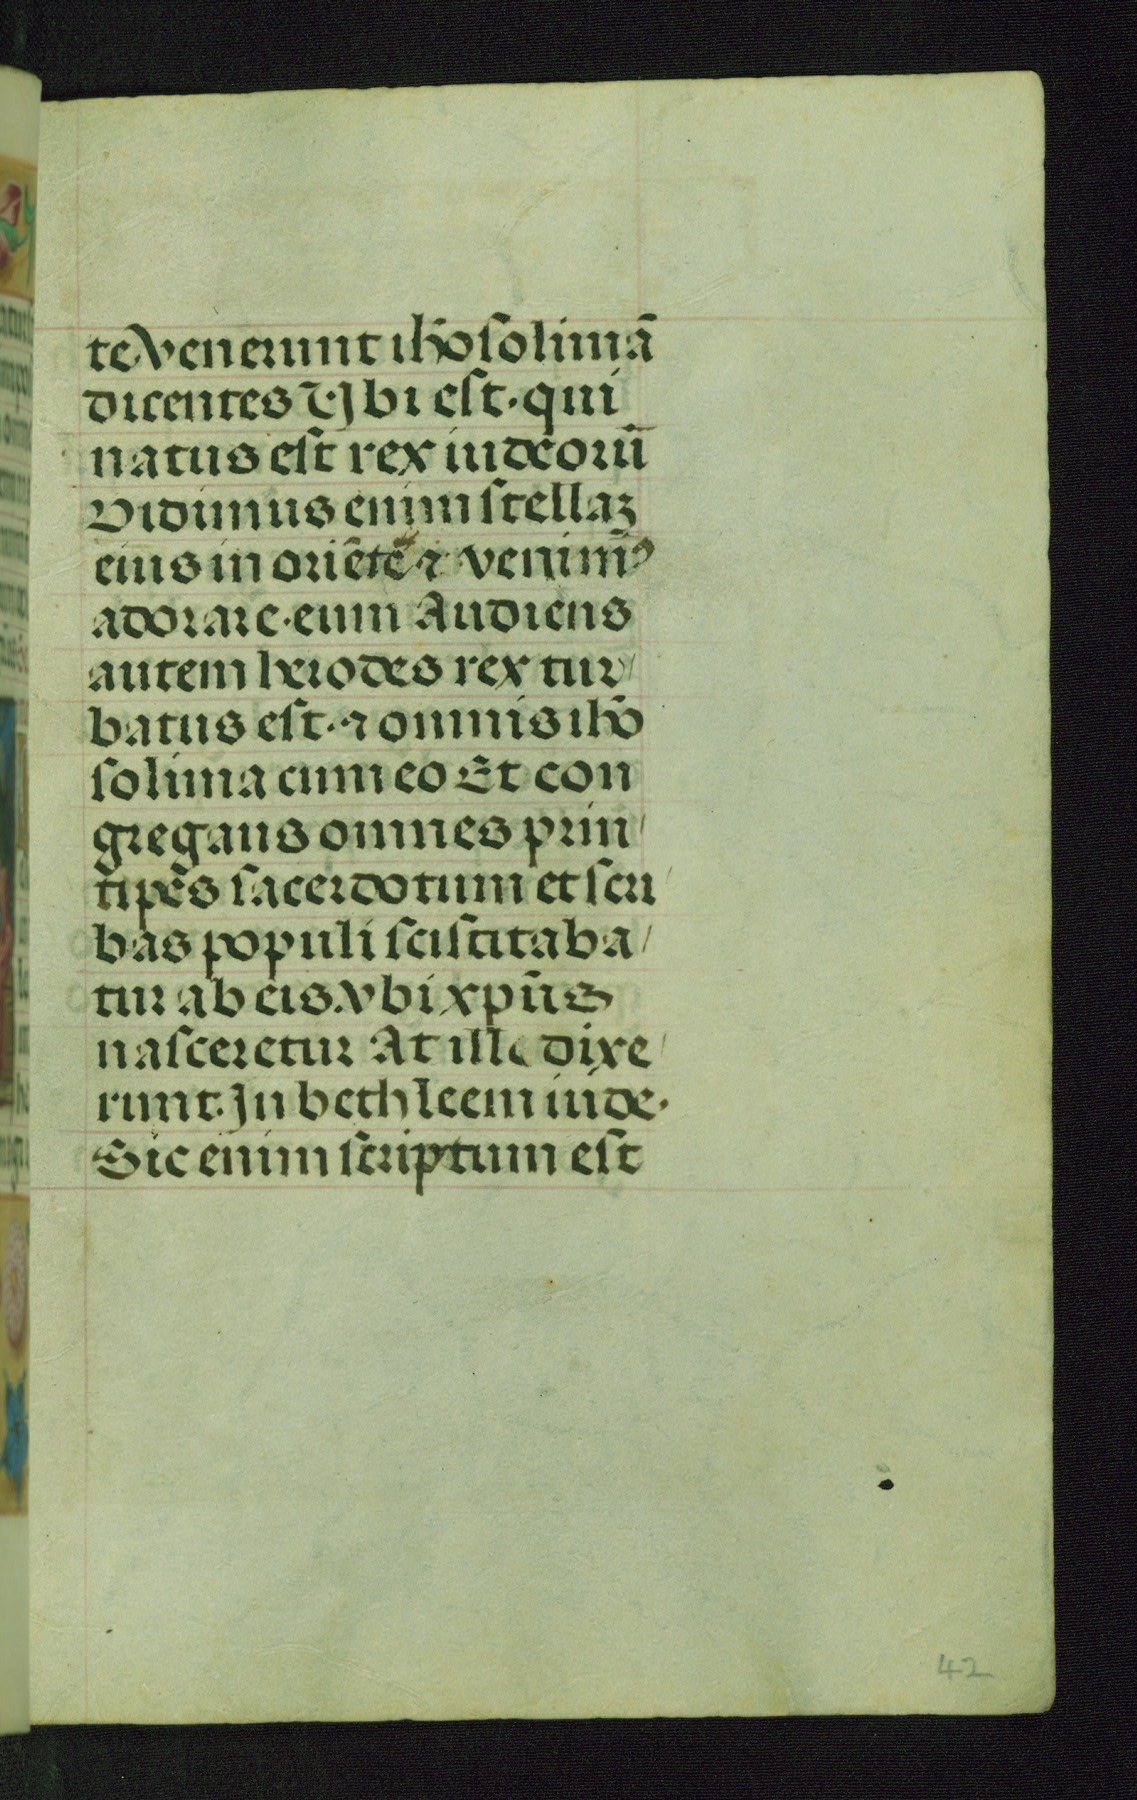 te venerunt ihosolimā
dicentes Vbi est· qui
natus est rex iudeorū
Vidimus enim stellaꝫ
eius in oriētē ⁊ venimꝰ
adorare· eum Audiens
autem herodes rex tur/
batus est· ⁊ omnis iho
solima cum eo Et con
gregans omnes prin/
cipes sacerdotum et scri/
bas populi sciscitaba/
tur ab eis. vbi xpūs
nasceretur At ille dixe/
runt. In bethleem iude·
Sic enim scriptum est
42